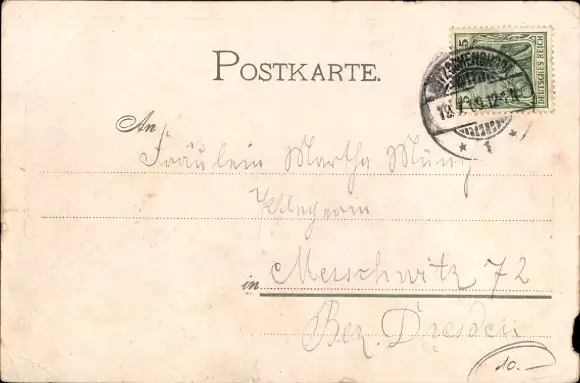 POSTKARTE.
5
DEUTSCHES REICH
An Fräulein Martha Münz
Pflegerin
in Meuschwitz 72
Bez. Dresden
10.—